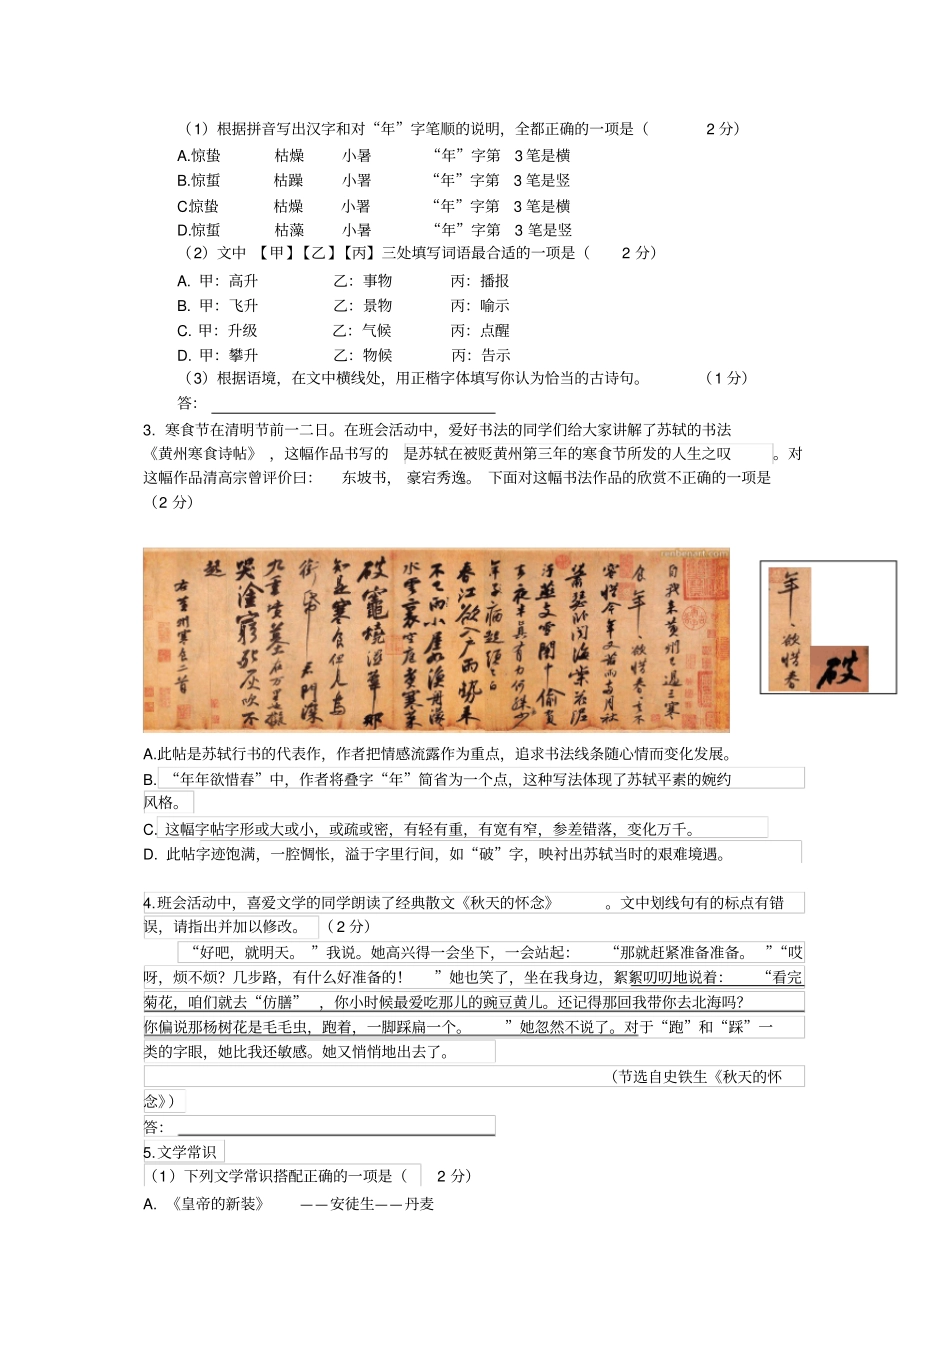 （1）根据拼音写出汉字和对“年”字笔顺的说明，全都正确的一项是（ 2 分）
A.惊蛰 枯燥 小暑 “年”字第 3 笔是横
B.惊蜇 枯躁 小署 “年”字第 3 笔是竖
C.惊蛰 枯燥 小署 “年”字第 3 笔是横
D.惊蜇 枯藻 小暑 “年”字第 3 笔是竖
（2）文中 【甲】【乙】【丙】三处填写词语最合适的一项是（ 2 分）
A. 甲：高升 乙：事物 丙：播报
B. 甲：飞升 乙：景物 丙：喻示
C. 甲：升级 乙：气候 丙：点醒
D. 甲：攀升 乙：物候 丙：告示
（3）根据语境，在文中横线处，用正楷字体填写你认为恰当的古诗句。 （1 分）
答：
3. 寒食节在清明节前一二日。在班会活动中，爱好书法的同学们给大家讲解了苏轼的书法
《黄州寒食诗帖》 ，这幅作品书写的 是苏轼在被贬黄州第三年的寒食节所发的人生之叹 。对
这幅作品清高宗曾评价曰： 东坡书， 豪宕秀逸。 下面对这幅书法作品的欣赏不正确的一项是
（2 分）
自我来黄州已过三寒
食年、欲惜春、去不
容惜今年又苦雨两月秋
萧瑟卧闻海棠花泥
汙燕支雪闇中偷负
去夜半真有力何殊少
年子病起须已白
春江欲入户雨势来
不已雨小屋如渔舟濛
水云里空庖煮寒菜
破灶烧湿苇那
知是寒食但见乌
衔帋君门深
九重坟墓在万里也拟
哭涂穷死灰吹不
起
右黄州寒食二首
年、欲惜春
破
A.此帖是苏轼行书的代表作，作者把情感流露作为重点，追求书法线条随心情而变化发展。
B. “年年欲惜春”中，作者将叠字“年”简省为一个点，这种写法体现了苏轼平素的婉约
风格。
C. 这幅字帖字形或大或小，或疏或密，有轻有重，有宽有窄，参差错落，变化万千。
D. 此帖字迹饱满，一腔惆怅，溢于字里行间，如“破”字，映衬出苏轼当时的艰难境遇。
4.班会活动中，喜爱文学的同学朗读了经典散文《秋天的怀念》 。文中划线句有的标点有错
误，请指出并加以修改。 （2 分）
“好吧，就明天。 ”我说。她高兴得一会坐下，一会站起： “那就赶紧准备准备。 ”“哎
呀，烦不烦？几步路，有什么好准备的！ ”她也笑了，坐在我身边，絮絮叨叨地说着： “看完
菊花，咱们就去“仿膳” ，你小时候最爱吃那儿的豌豆黄儿。还记得那回我带你去北海吗？
你偏说那杨树花是毛毛虫，跑着，一脚踩扁一个。 ”她忽然不说了。对于“跑”和“踩”一
类的字眼，她比我还敏感。她又悄悄地出去了。
（节选自史铁生《秋天的怀
念》）
答：
5.文学常识
（1）下列文学常识搭配正确的一项是（ 2 分）
A. 《皇帝的新装》 ——安徒生——丹麦